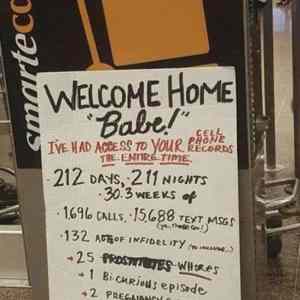 smarteca
WELCOME HOME
"Babe!"
I'VE HAD ACCESS TO YOUR CELL PHONE RECORDS
THE ENTIRE TIME.
• 212 DAYS, • 211 NIGHTS
• 30.3 WEEKS of
• 1,696 CALLS, • 15,688 TEXT MSGS
• 132 ACTS OF INFIDELITY
→ 25 PROSTITUTES WHORES
→ 1 Bicurious episode
→ 2 PREGNANCIES